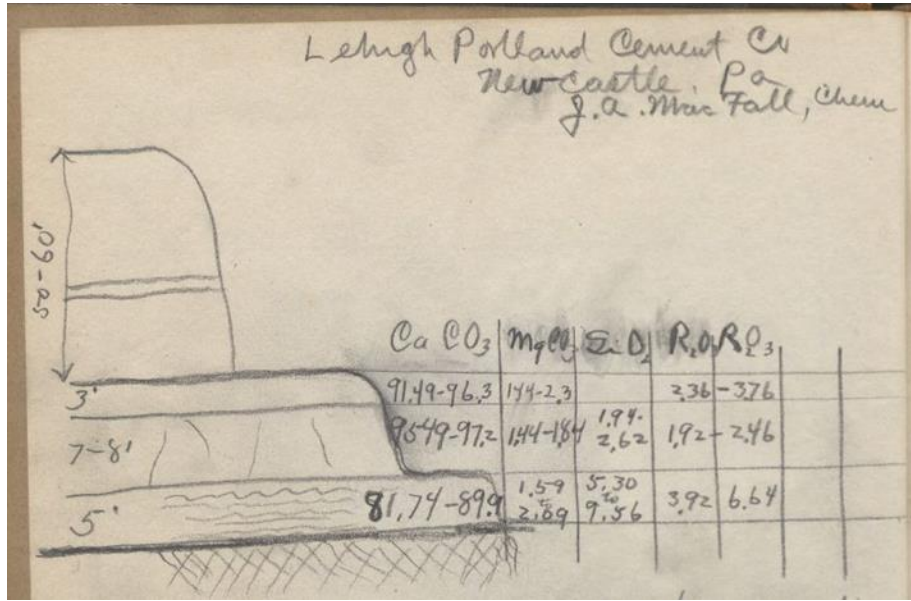 Lehigh Portland Cement Co
New Castle. Pa
J.A. MacFall, Chem
50-60'
CaCO3 MgCO3 SiO2 R2O R2O3
3' 91.49-96.3 1.44-2.3 2.36-3.76
7-8' 95.49-97.2 1.44-1.84 1.94-2.62 1.92-2.46
5' 81.74-89.9 1.59 to 2.89 5.30 to 9.56 3.92 6.64